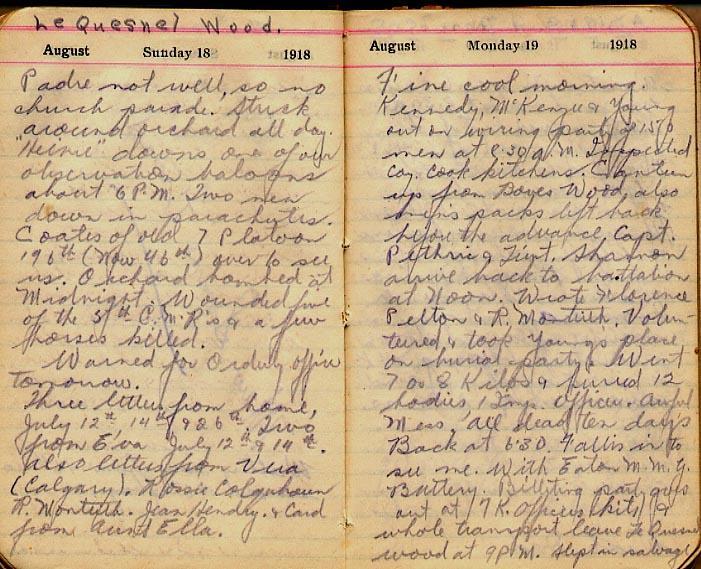 Le Quesnel Wood.
August Sunday 18 1918
Padre not well, so no
church parade. Stuck
around orchard all day.
"Heinie" downs, one of our
observation baloons
about 6 P.M. Two men
down in parachutes.
Coates of old 7 Platoon
196th (Now 46th) over to see
us. Orchard bombed at
Midnight. Wounded five
of the 5th C.M.R's & a few
horses killed.
Warned for Orderly officer
tomorrow.
Three letters from home,
July 12th, 14th, 9 & 6th. Two
from Eva July 12th & 14th.
Also letters from Vera
(Calgary). Flossie Colquhoun
R. Montieth. Jean Hendry. & Card
from Aunt Ella.
August Monday 19 1918
Fine cool morning.
Kennedy, McKenzie & Young
out on wiring party of 150
men at 8.30 A.M. Inspected
coy. cook kitchens. Canteen
up from Boves Wood, also
men's packs left back
before the advance. Capt.
Pethrie & Lieut. Shannon
arrive back to battalion
at Noon. Wrote Florence
Pelton & R. Montieth. Volun-
teered & took Young's place
on burial party. Went
7 or 8 Kilos & buried 12
bodies, 1 Imp. Officer. Awful
Mess, all dead ten days
Back at 6.30. Fallis in to
see me. With Eaton M.M.G.
Battery. Billeting party goes
out at 7 K. Officers kits &
whole transport leave Le Quesnel
wood at 9 P.M. Slept in salvage